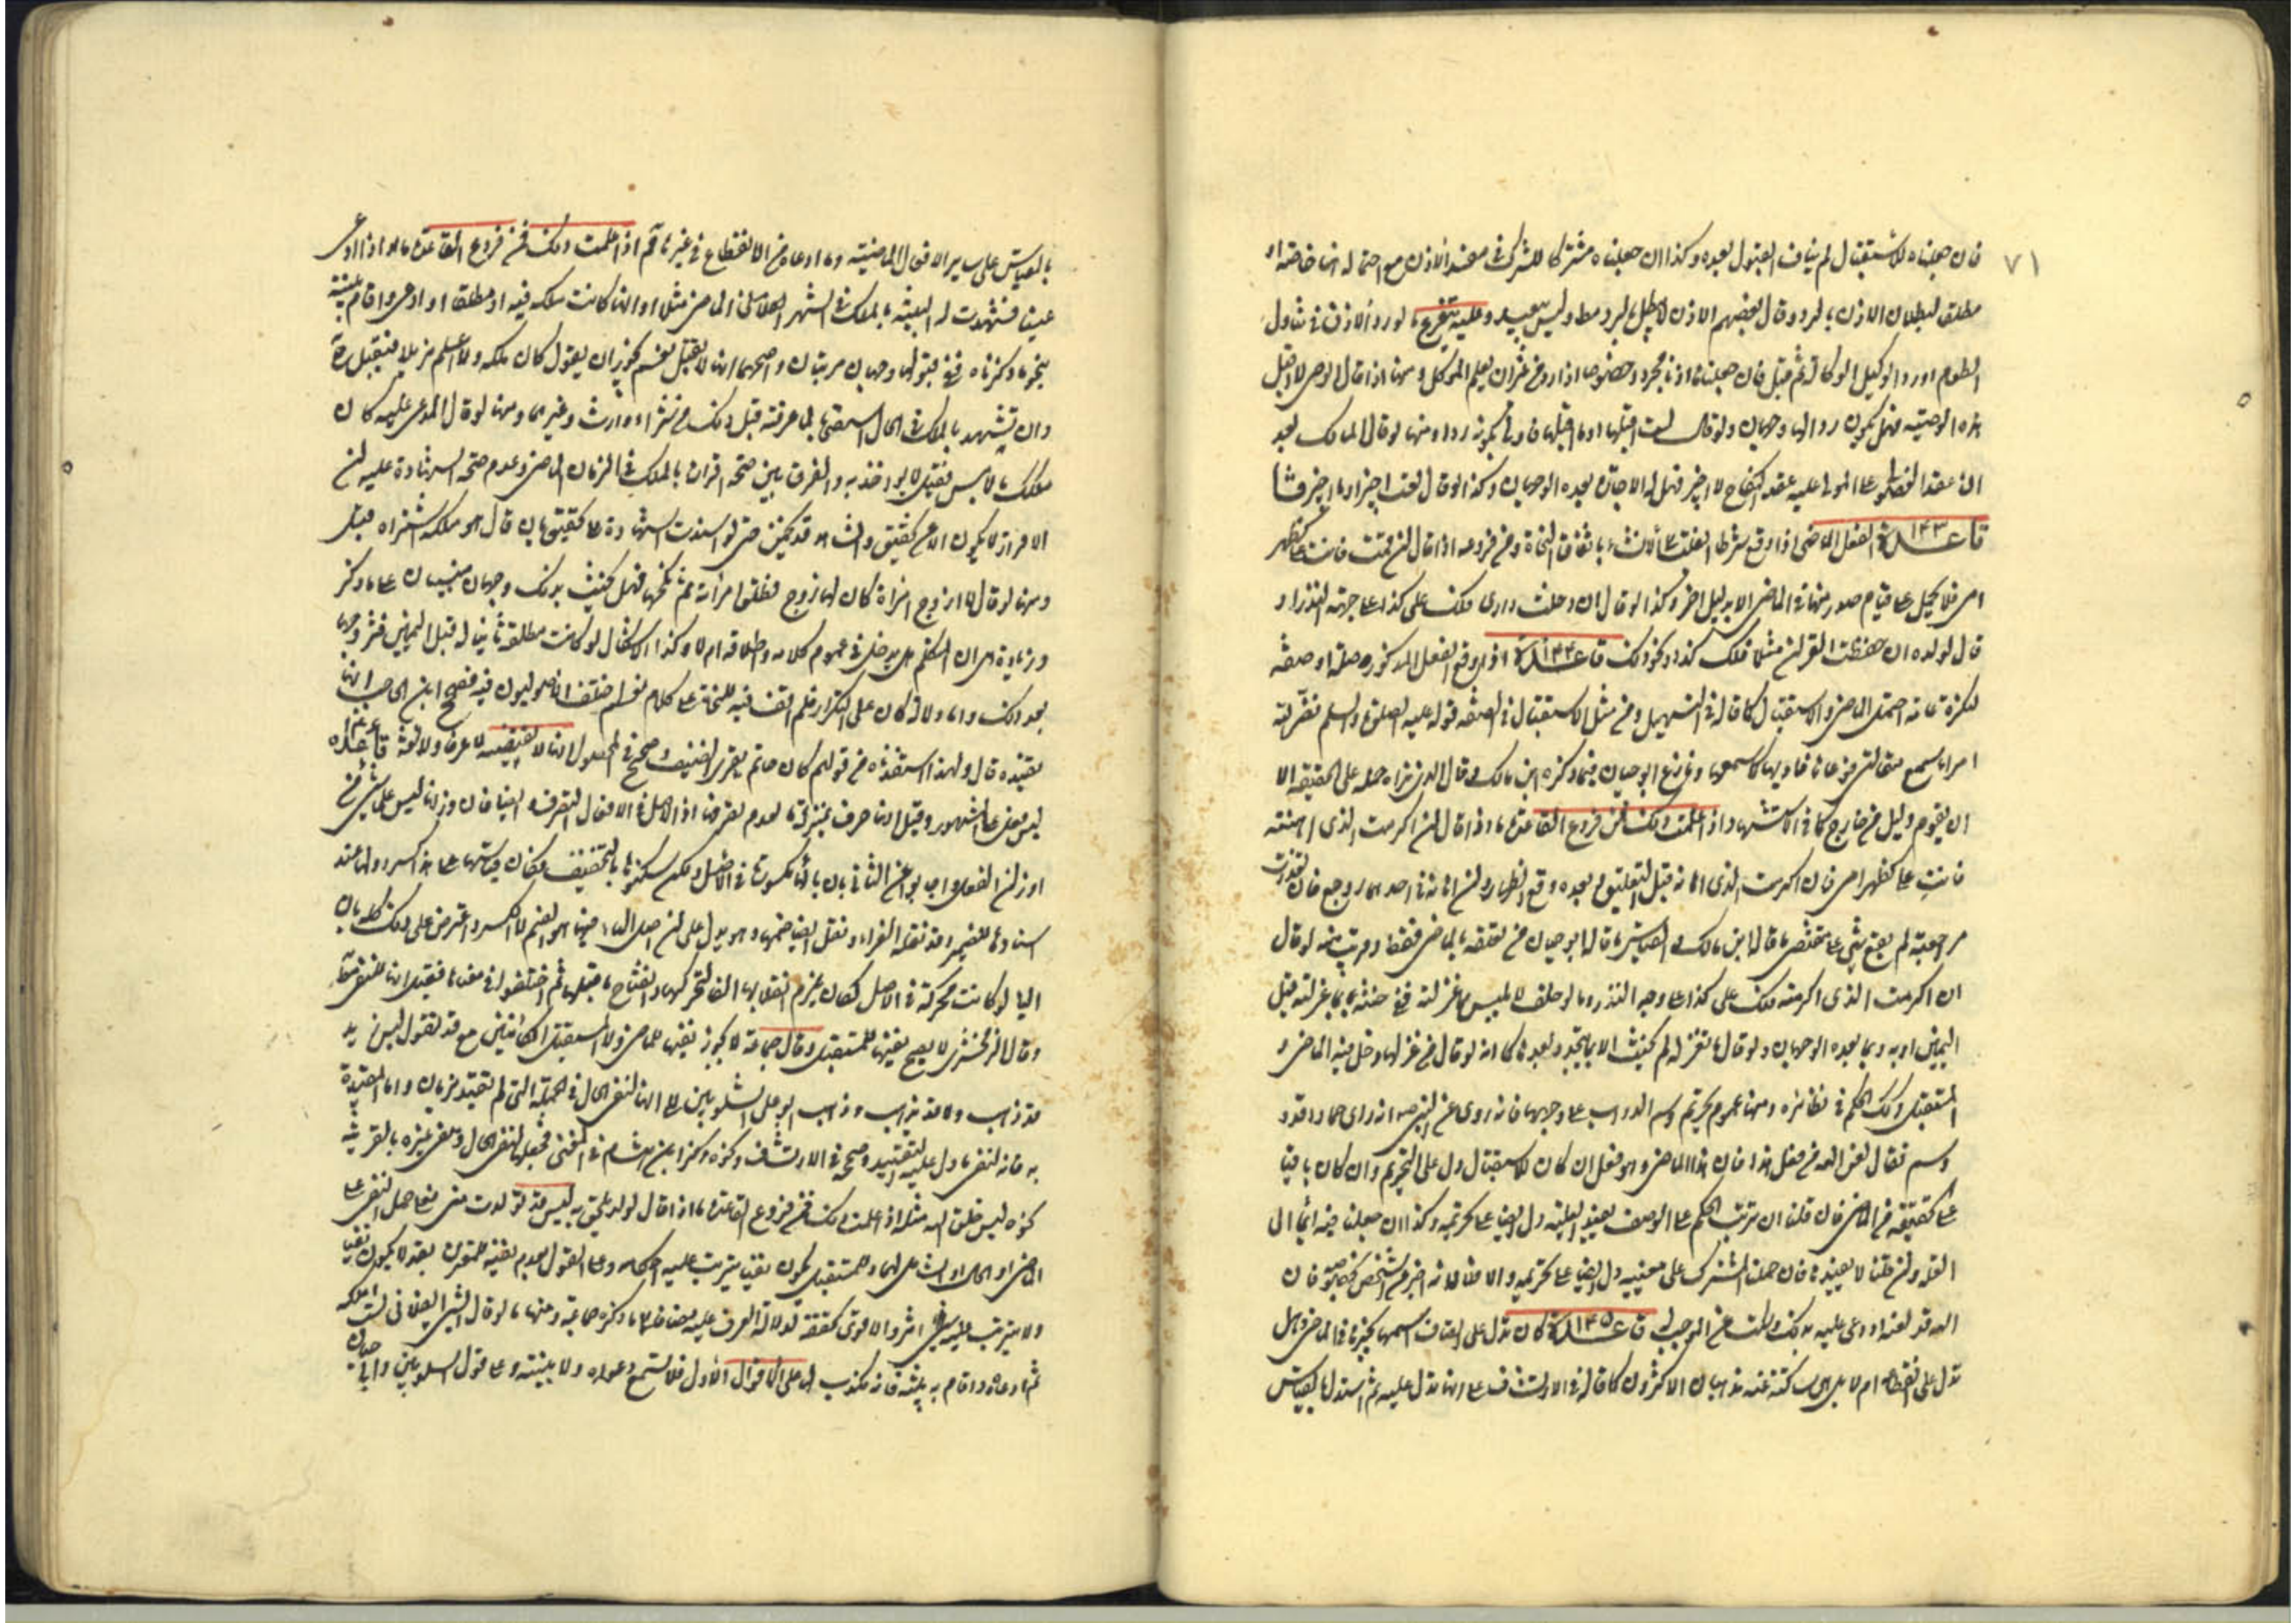 ٧١
فان جعلناه للاستقبال لم يناف القبول بعده وكذا ان جعلناه مشتركا للشك في مفسد الاذن مع احتماله انها خاصة او
مطلق لبطلان الاذن بالرد وقال بعضهم الاذن لا يبطل بالرد مط وليس ببعيد وعليه يتفرع ما لو رد الاذن في تناول
الطعام او رد الوكيل الوكالة ثم قبل فان جعلناها اذنا مجرد وخصوصا اذا رد من غير ان يعلم الموكل ومنها اذا قال الوصي لا اقبل
هذه الوصية فهل يكون ردا لها وجهان ولو قال لست اقبلها او ما اقبلها فاولى بكونه ردا ومنها لو قال المالك بعد
ان عقد الفضولي او المولى عليه عقد النكاح لا اجيز فهل له الاجازة بعده الوجهان وكذا لو قال لست اجيز او ما اجيز
قاعدة ١٤٣ الفعل الماضي اذا وقع شرطا انقلب الى الانشاء باتفاق النحاة ومن فروعه اذا قال ان قمت فانت علي كظهر
امي فلا يحمل على قيام صدر منها في الماضي الا بدليل اخر وكذا لو قال ان دخلت داري فلك علي كذا على جهة النذر او
قال لولده ان حفظت القران مثلا فلك كذا ونحو ذلك قاعدة ١٤٤ اذا وقع الفعل المذكور صلة او صفة
لنكرة عامة احتمل الماضي والاستقبال كما قاله في التسهيل ومن مثل الاستقبال في الصفة قوله عليه الصلوة والسلم نضر الله
امرا سمع مقالتي فوعاها فاداها كما سمعها ونازع ابو حيان فيما ذكره ابن مالك وقال الذي نراه حمله على الحقيقة الا
ان يقوم دليل من خارج كما في الاستشهاد اذا علمت ذلك فمن فروع القاعدة ما اذا قال ان اكرمت الذي اهنته
فانت علي كظهر امي فان اكرمت الذي اهانه قبل التعليق او بعده وقع الظهار وان اهانه في احدهما روجع فان تعذرت
مراجعته لم يقع شي على مقتضى ما قاله ابن مالك والقياس ما قاله ابو حيان من تعلقه بالماضي فقط وقريب منه لو قال
ان اكرمت الذي اكرمته فلك علي كذا على وجه النذر وما لو حلف لا يلبس ما غزلته فلانة ففي حنثه بما غزلته قبل
اليمين او به وبما بعده الوجهان ولو قال ما تغزله لم يحنث الا بما يتجدد بعد كما انه لو قال من غزلها دخل فيه الماضي و
المستقبل وكذلك الحكم في نظائره ومنها عموم تحريم وسم الدواب على وجهها فانه روى عن النبي ص انه راى حمارا قد
وسم فقال لعن الله من فعل هذا فان هذا الماضي وهو فعل ان كان للاستقبال دل على التحريم وان كان باقيا
على حقيقته من الماضي فان قلنا ان ترتيب الحكم على الوصف يفيد العلية دل ايضا على تحريمه وكذا ان جعلناه مع ايماء الى
العلة وان قلنا لا يفيدها فان حملنا المشترك على معنييه دل ايضا على تحريمه والا فلا لانه اخبر عن شخص بخصوصه فان
الله قد لعنه او دعى عليه بذلك وسكت عن الموجب له قاعدة ١٤٥ كان تدل على اتصاف اسمها بخبرها في الماضي وهل
تدل على انقطاعه ام لا بل هي ساكتة عنه مذهبان الاكثرون كما قاله في الارتشاف على انها تدل عليه ثم استدل بالقياس
بالقياس على ساير الافعال الماضية وما ادعاه من الانقطاع في غيرها ثم اذا علمت ذلك فمن فروع القاعدة ما لو اذا ادعى
عينا فشهدت له البينة بالملك في الشهر الفلاني الماضي مثلا او انها كانت ملكه فيه او مطلقا او ادعى واقام بينة
بنحو ما ذكرناه ففي قبولها وجهان مرتبان واصحهما انها لا تقبل نعم يجوز ان يقول كان ملكه ولا اعلم مزيلا فتقبل
وان تشهد بالملك في الحال استصحابا لما عرفته قبل ذلك من شراء وارث وغيرهما ومنها لو قال المدعى عليه كان
ملكك بالامس فقيل لا يؤاخذ به والفرق بين صحة اقراره بالملك في الزمان الماضي وعدم صحة الشهادة عليه ان
الاقرار لا يكون الا عن تحقيق والشاهد قد يخمن حتى لو استندت الشهادة الى تحقيق بان قال هو ملكه اشتراه قبلت
ومنها لو قال ان ازوج امراة كان لها زوج فطلق امراته ثم نكحها فهل يحنث بذلك وجهان مبنيان على ما ذكر
وزيادة هي ان المتكلم هل يدخل في عموم كلامه واطلاقه ام لا وكذا الاشكال لو كانت مطلقة ثانيا له قبل اليمين فتزوجها
بعد ذلك واما دلالة كان على التكرار فلم اقف فيه للنحاة على كلام نعم اختلف الاصوليون فيه فصحح ابن الحاجب انها
يفيده قال ولهذا استفدناه من قولهم كان حاتم يقري الضيف وصحح في المحصول انها لا تقتضيه لا عرفا ولا لغة قاعدة ١٤٦
ليس فعل على المشهور وقيل انها حرف بمنزلة ما لعدم تصرفها اذ الاصل في الافعال التصرف وايضا فان وزنها ليس على شي من
اوزان الفعل واجابوا عن الثاني بان ياءها مكسورة في الاصل ولكن سكنوها بالتخفيف وكان قياسها على هذا كسر اولها عند
اسنادها للضمير وقد نقله الفراء ونقل ايضا ضمها وهو يدل على ان اصل الياء فيها هو الضم لا الكسر واعترض على ذلك كله بان
الياء لو كانت محركة في الاصل لكان يلزم انقلابها الفا لتحركها وانفتاح ما قبلها ثم اختلفوا في معناها فقيل انها للنفي مطلقا
وقال الزمخشري لا يصح نفيها للمستقبل وقال جماعة لا يجوز نفيها للماضي ولا المستقبل الكائنين مع قد تقول ليس زيد
قد ذهب ولا قد يذهب وذهب ابو علي الشلوبين الى انها لنفي الحال في الجملة التي لم تقيد بزمان واما المقيدة
به فانه لنفي ما دل عليه التقييد وصححه في الارتشاف وذكره وكذا ابن هشام في المغني فجعلها لنفي الحال وتنفي غيره بالقرينة
نحوه ليس خلق الله مثله اذا علمت ذلك فمن فروع القاعدة ما اذا قال لولد يلحق به ليس قد تولدت مني فعلى حمل النفي على
الماضي او الحال او الشامل لهما وللمستقبل يكون نفيا يترتب عليه احكامه وعلى القول بعدم نفيه للمقترن بقد لا يكون نفيا
ولا يترتب عليه شي اثر والاقوى تحققه لدلالة العرف عليه مضافا الى ما ذكره جماعة ومنها ما لو قال الشي الفلاني لست املكه
ثم ادعاه واقام به بينة فانه مكذب لها على الاقوال الاول فلا تسمع دعواه ولا بينته وعلى قول الشلوبين وابي حيان